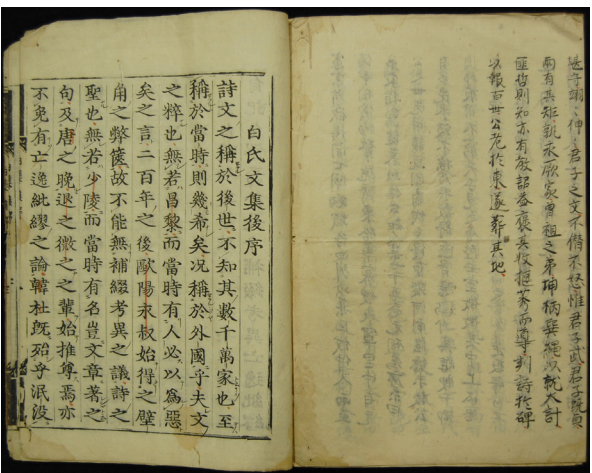 君子之文不僭不怒惟君子武君子
兩有其矩孰承厥家曾祖之弟坤柄業經以就大計
匪哲則知亦有敎詔益褒其收而尊刻詩於碑
以報百世公老於東遂葬其地
白氏文集後序
詩文之稱於後世不知其數千萬家也至
稱於當時則幾希矣况稱於外國乎夫文
之粹也無若昌黎而當時有人必以爲惡
矣之言二百年之後歐陽永叔始得之壁
角之弊篋故不能無補綴考異之議詩之
聖也無若少陵而當時有名豈文章著之
句及唐之晩退之微之之輩始推尊焉亦
不免有亡逸紕繆之論韓杜旣殆乎泯没